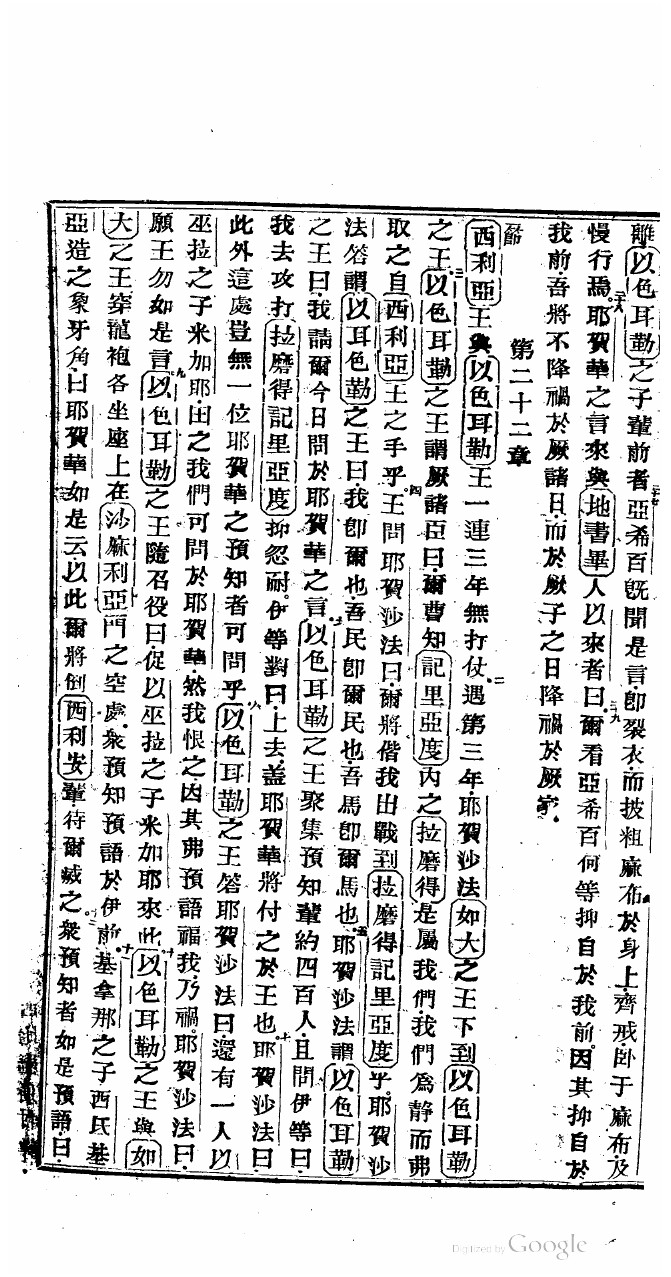 離以色耳勒之子輩前者亞希百旣聞是言卽裂衣而披粗麻布於身上齊戒臥于麻布及
慢行焉耶賀華之言來與地書畢人以來者曰爾看亞希百何等抑自於我前因其抑自於
我前吾將不降禍於厥諸日而於厥子之日降禍於厥家
第二十二章
西利亞王與以色耳勒王一連三年無打仗二遇第三年耶賀沙法如大之王下到以色耳勒
之王三以色耳勒之王謂厥諸臣曰爾曹知記里亞度內之拉磨得是屬我們我們爲靜而弗
取之自西利亞王之手乎四王問耶賀沙法曰爾將偕我出戰到拉磨得記里亞度乎耶賀沙
法答謂以耳色勒之王曰我卽爾也吾民卽爾民也吾馬卽爾馬也五耶賀沙法謂以色耳勒
之王曰我請爾今日問於耶賀華之言六以色耳勒之王聚集預知輩約四百人且問伊等曰
我去攻打拉磨得記里亞度抑忍耐伊等對曰上去蓋耶賀華將付之於王也七耶賀沙法曰
此外這處豈無一位耶賀華之預知者可問乎八以色耳勒之王答耶賀沙法曰還有一人以
巫拉之子米加耶田之我們可問於耶賀華然我恨之因其弗預語福我乃禍耶賀沙法曰
願王勿如是言九以色耳勒之王隨召役曰促以巫拉之子米加耶來此十以色耳勒之王與如
大之王穿龍袍各坐座上在沙麻利亞門之空處衆預知預語於伊前十一基拿那之子西氏基
亞造之象牙角曰耶賀華如是云以此爾將倒西利安輩待爾滅之十二衆預知者如是預語曰
Digitized by Google